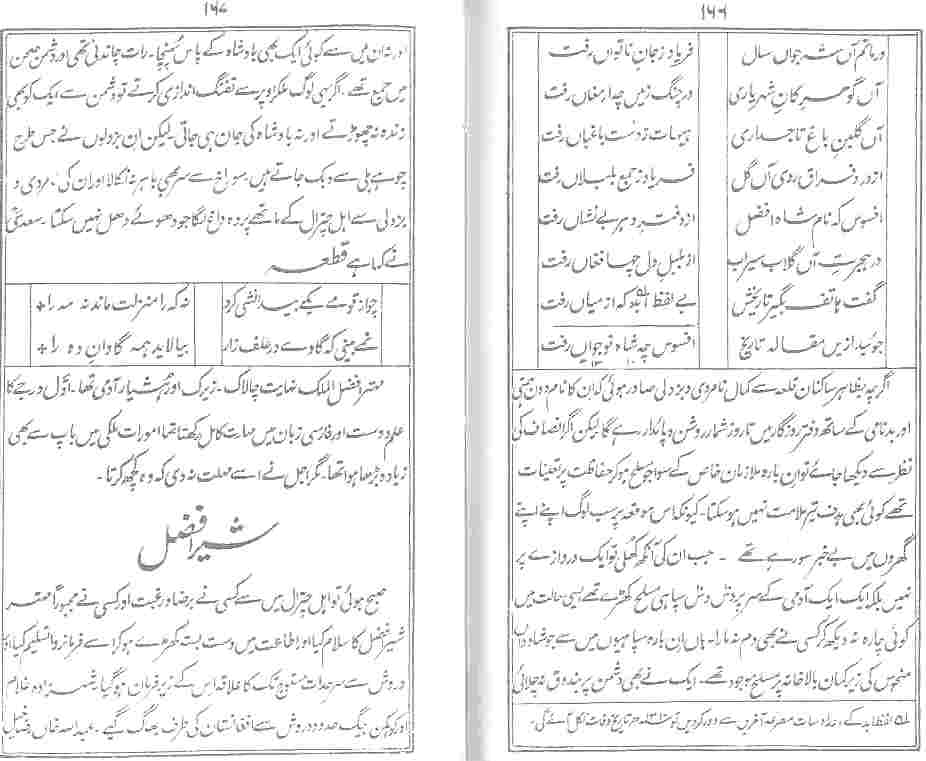 ۱۶۶
در ماتم آں شہ جواں سال فریاد ز جان ناتواں رفت
آں گوہر کانِ شہریاری در جنگ زیں جہاں رفت
آں گلبنِ باغِ تاجداری ہیہات ز دست باغباں رفت
از درد فراق روی آں گل فریاد ز جمع بلبلاں رفت
افسوس کہ نام شاہ افضل از دفتر دہر بے نشاں رفت
در ہجرتِ آں گلاب سیراب از بلبل دل فغاں رفت
گفت ہاتف بگیر تاریخش بے لفظ ابد کہ از میاں رفت
جوئید ازیں مقالہ تاریخ افسوس چہ شاہ نوجواں رفت
اگرچہ بظاہر ساکنان قلعہ سے کمال نامردی و بزدلی صادر ہوئی کہ ان کا نام
اور بدنامی کے ساتھ دفتر روزگار میں تا روز شمار روشن و پائدار رہے گا لیکن اگر انصاف کی
نظر سے دیکھا جائے تو ان بارہ ملازمان خاص کے سوا جو مسلح ہو کر حفاظت پر تعینات
تھے کوئی بھی ہدف تیر ملامت نہیں ہو سکتا۔ کیونکہ اس موقعہ پر سب لوگ اپنے اپنے
گھروں میں بے خبر سو رہے تھے ۔ جب ان کی آنکھ کھلی تو ایک دروازے پر
نہیں بلکہ ایک ایک آدمی کے سر پر دس دس سپاہی مسلح کھڑے تھے ایسی حالت میں
کوئی چارہ نہ دیکھ کر کسی نے بھی دم نہ مارا۔ ہاں ان بارہ سپاہیوں میں سے جو شاہ
منحوس کی زیر کمان بالا خانہ پر مسلح موجود تھے۔ ایک نے بھی دشمن پر بندوق نہ چلائی
لفظ ابد کے سات مصرعہ آخریں سے دور کر دیں تو تاریخ وفات نکل آئے گی۔
۱۶۷
اور نہ ان میں سے کوئی ایک بھی بادشاہ کے پاس پہنچا۔ رات چاندنی تھی اور دشمن صحن
میں جمع تھے، اگر یہی لوگ اوپر سے تفنگ اندازی کرتے تو دشمن سے ایک کو بھی
زندہ نہ چھوڑتے اور نہ بادشاہ کی جان ہی جاتی۔ لیکن ان بزدلوں نے جس طرح
چوہے بلی سے دبک جاتے ہیں۔ سوراخ سے سر بھی باہر نہ نکالا اور ان کی نامردی و
بزدلی سے اہل چترال کے ماتھے پر وہ داغ لگا جو دھوئے دھل نہیں سکتا۔ سعدی
نے کہا ہے قطعہ
چو از قومے یکے بیدانشی کرد نہ کہ را منزلت ماند نہ مہ را *
نمے بینی کہ گاوے در علف زار بیالاید ہمہ گاوانِ دہ را *
مہتر افضل الملک نہایت چالاک۔ زیرک اور ہشیار آدمی تھا۔ اوّل درجے کا
علم دوست اور فارسی زبان میں مہارت کامل رکھتا تھا امورات ملکی میں باپ سے بھی
زیادہ بڑھا ہوا تھا۔ مگر اجل نے اسے مہلت نہ دی کہ وہ کچھ کرتا۔
شیر افضل
صبح ہوئی تو اہل چترال میں سے کسی نے برضا و رغبت اور کسی نے مجبوراً مہتر
شیر افضل کا سلام کیا اور اطاعت میں دست بستہ کھڑے ہو کر اسے فرمانروا تسلیم کیا اور
دروش سے سرحدات مستوج تک کا علاقہ اس کے زیر فرمان ہو گیا۔ شہزادہ غلام
اور کوہکن بیگ حدود دروش سے افغانستان کی طرف بھاگ گئے۔ عبداللہ خاں